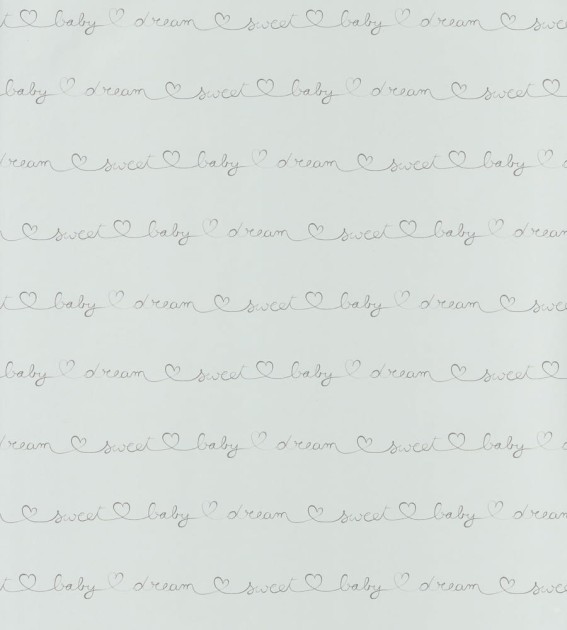 t ♡ baby ♡ dream ♡ sweet ♡ baby ♡ dream ♡ swe
baby ♡ dream ♡ sweet ♡ baby ♡ dream ♡ sweet ♡
ream ♡ sweet ♡ baby ♡ dream ♡ sweet ♡ baby ♡ d
♡ sweet ♡ baby ♡ dream ♡ sweet ♡ baby ♡ dream
t ♡ baby ♡ dream ♡ sweet ♡ baby ♡ dream ♡ swe
baby ♡ dream ♡ sweet ♡ baby ♡ dream ♡ sweet ♡
ream ♡ sweet ♡ baby ♡ dream ♡ sweet ♡ baby ♡ d
♡ sweet ♡ baby ♡ dream ♡ sweet ♡ baby ♡ dream
t ♡ baby ♡ dream ♡ sweet ♡ baby ♡ dream ♡ swe